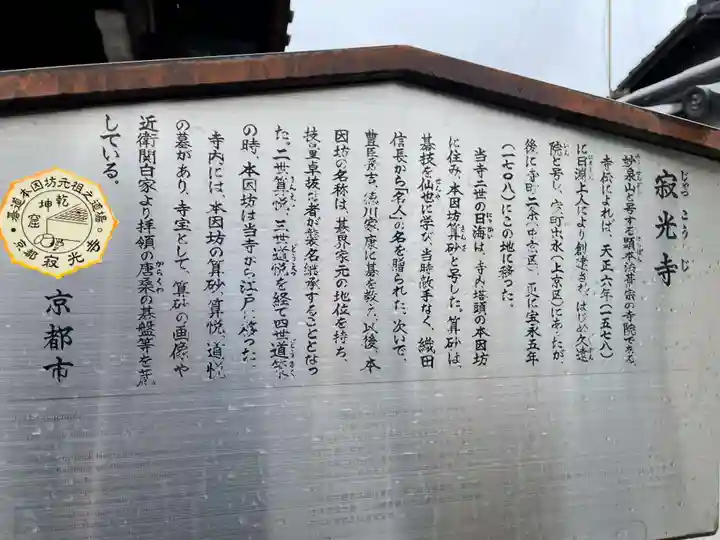 寂光寺
じゃっこうじ
妙泉山と号する顕本法華宗の寺院である。
寺伝によれば、天正六年(一五七八)
に日淵上人により創建され、はじめ久遠
院と号し、室町出水(上京区)にあったが
後に寺町二条(中京区)、更に宝永五年
(一七〇八)にこの地に移った。
当寺二世の日海は、寺内塔頭の本因坊
に住み、本因坊算砂と号した。算砂は、
碁技を仙也に学び、当時敵手なく、織田
信長から「名人」の名を贈られた。次いで、
豊臣秀吉、徳川家康に碁を教え、以後、本
因坊の名称は、碁界家元の地位を持ち、
技量卓抜な者が襲名継承することとなっ
た。二世算悦、三世道悦を経て四世道策
の時、本因坊は当寺から江戸に移った。
寺内には、本因坊の算砂、算悦、道悦
の墓があり、寺宝として、算砂の画像や
近衛関白家より拝領の唐桑の碁盤等を蔵
している。
京都市
碁道本因坊元祖之道場。
乾坤窟
京都寂光寺